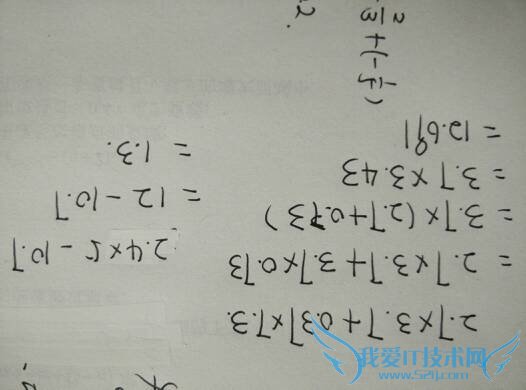 2.7×3.7+0.37×7.3.
= 2.7×3.7+3.7×0.73
= 3.7×(2.7+0.73)
= 3.7×3.43
= 12.691
2.4×5-10.7
= 12-10.7
= 1.3.
我爱IT技术网
www.52ij.com